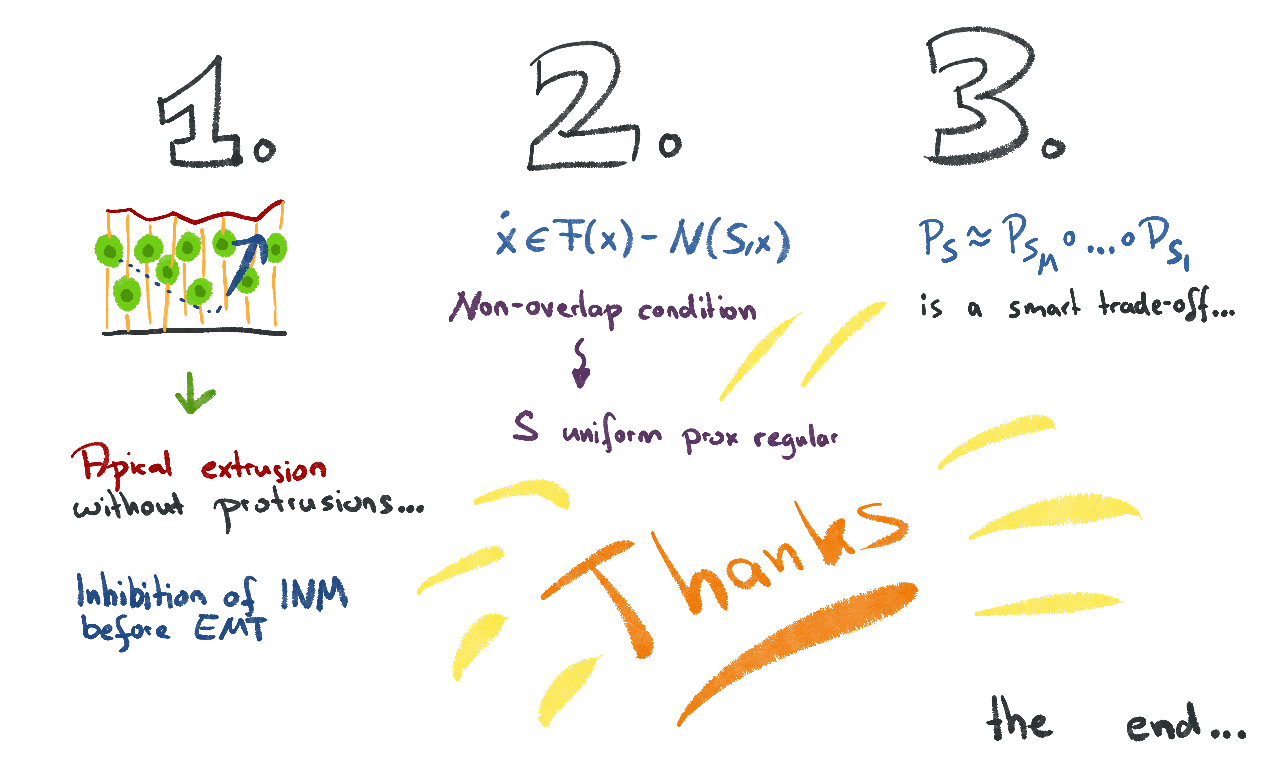 1.
Apical extrusion
without protrusions...
Inhibition of INM
before EMT
2.
ẋ ∈ F(x) - N(S,x)
Non-overlap condition
S uniform prox regular
3.
P_S ≈ P_{S_M} ∘ ... ∘ P_{S_1}
is a smart trade-off...
Thanks
the end...